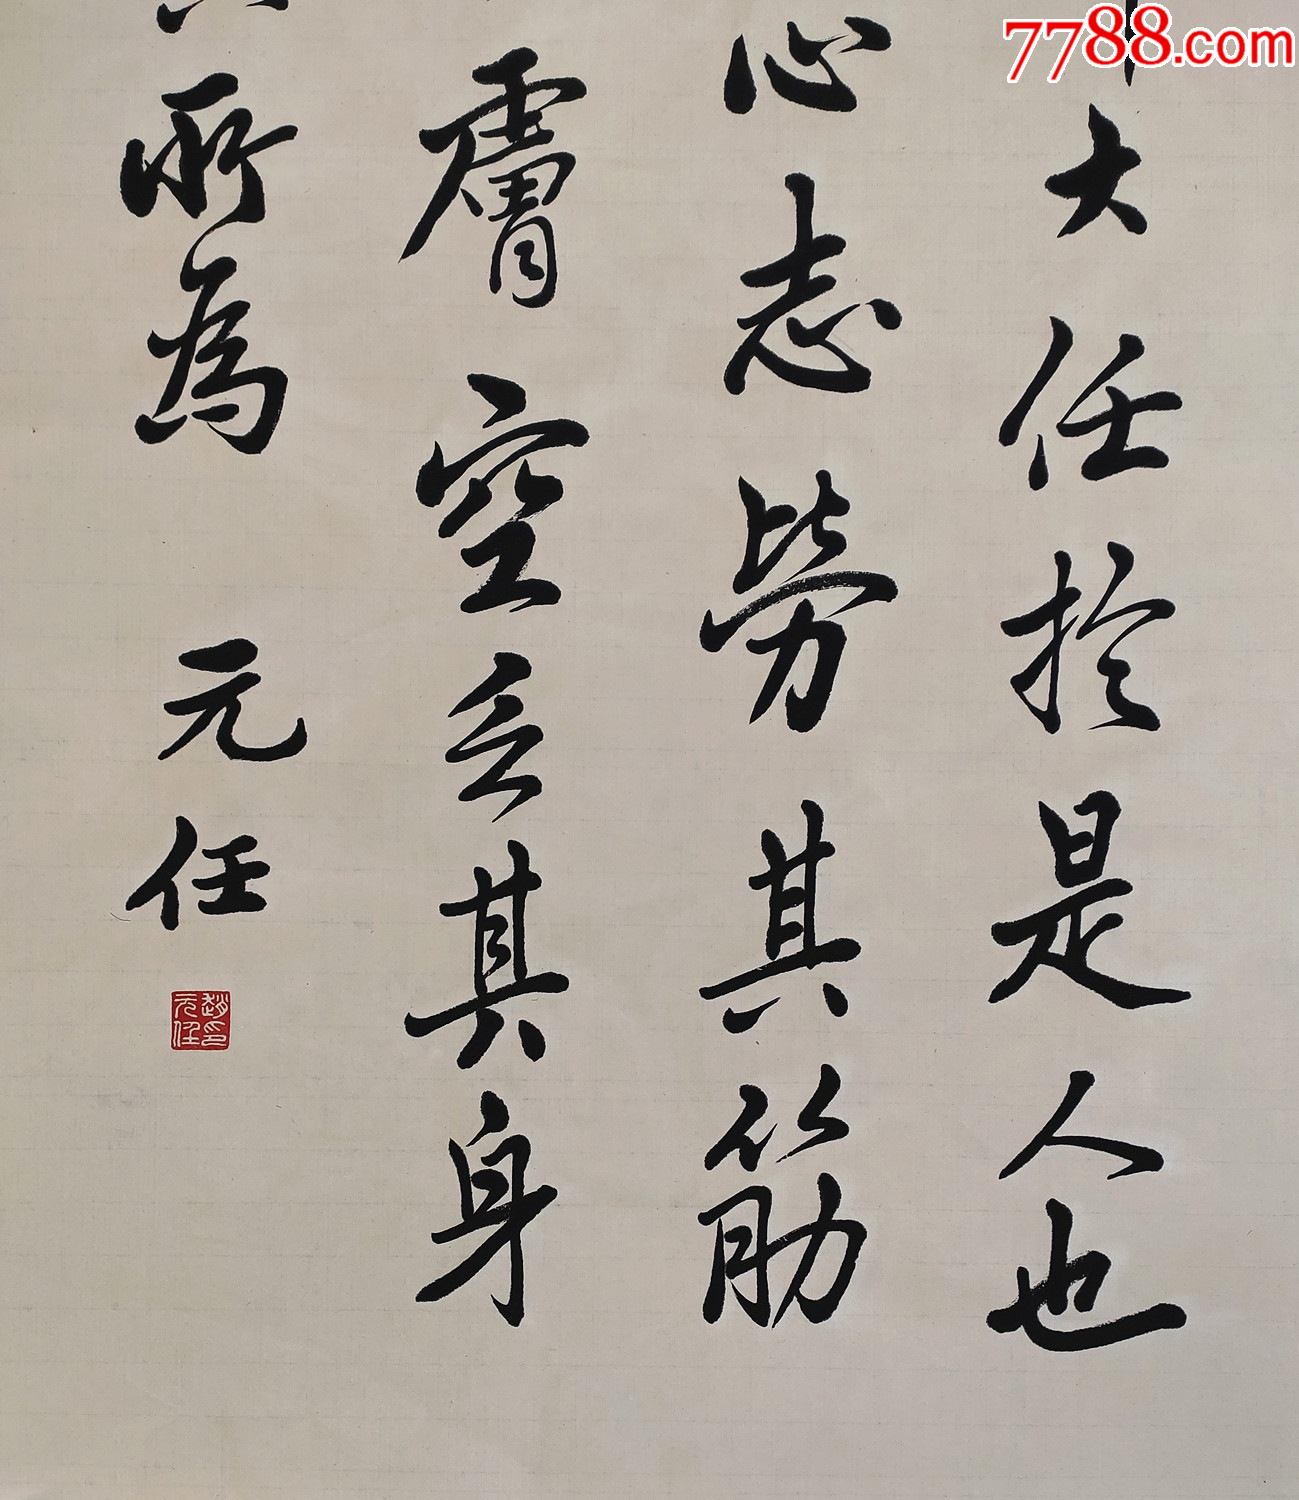 7788.com
大任於是人也
心志勞其筋
膚空乏其身
所為
元任
趙元任印